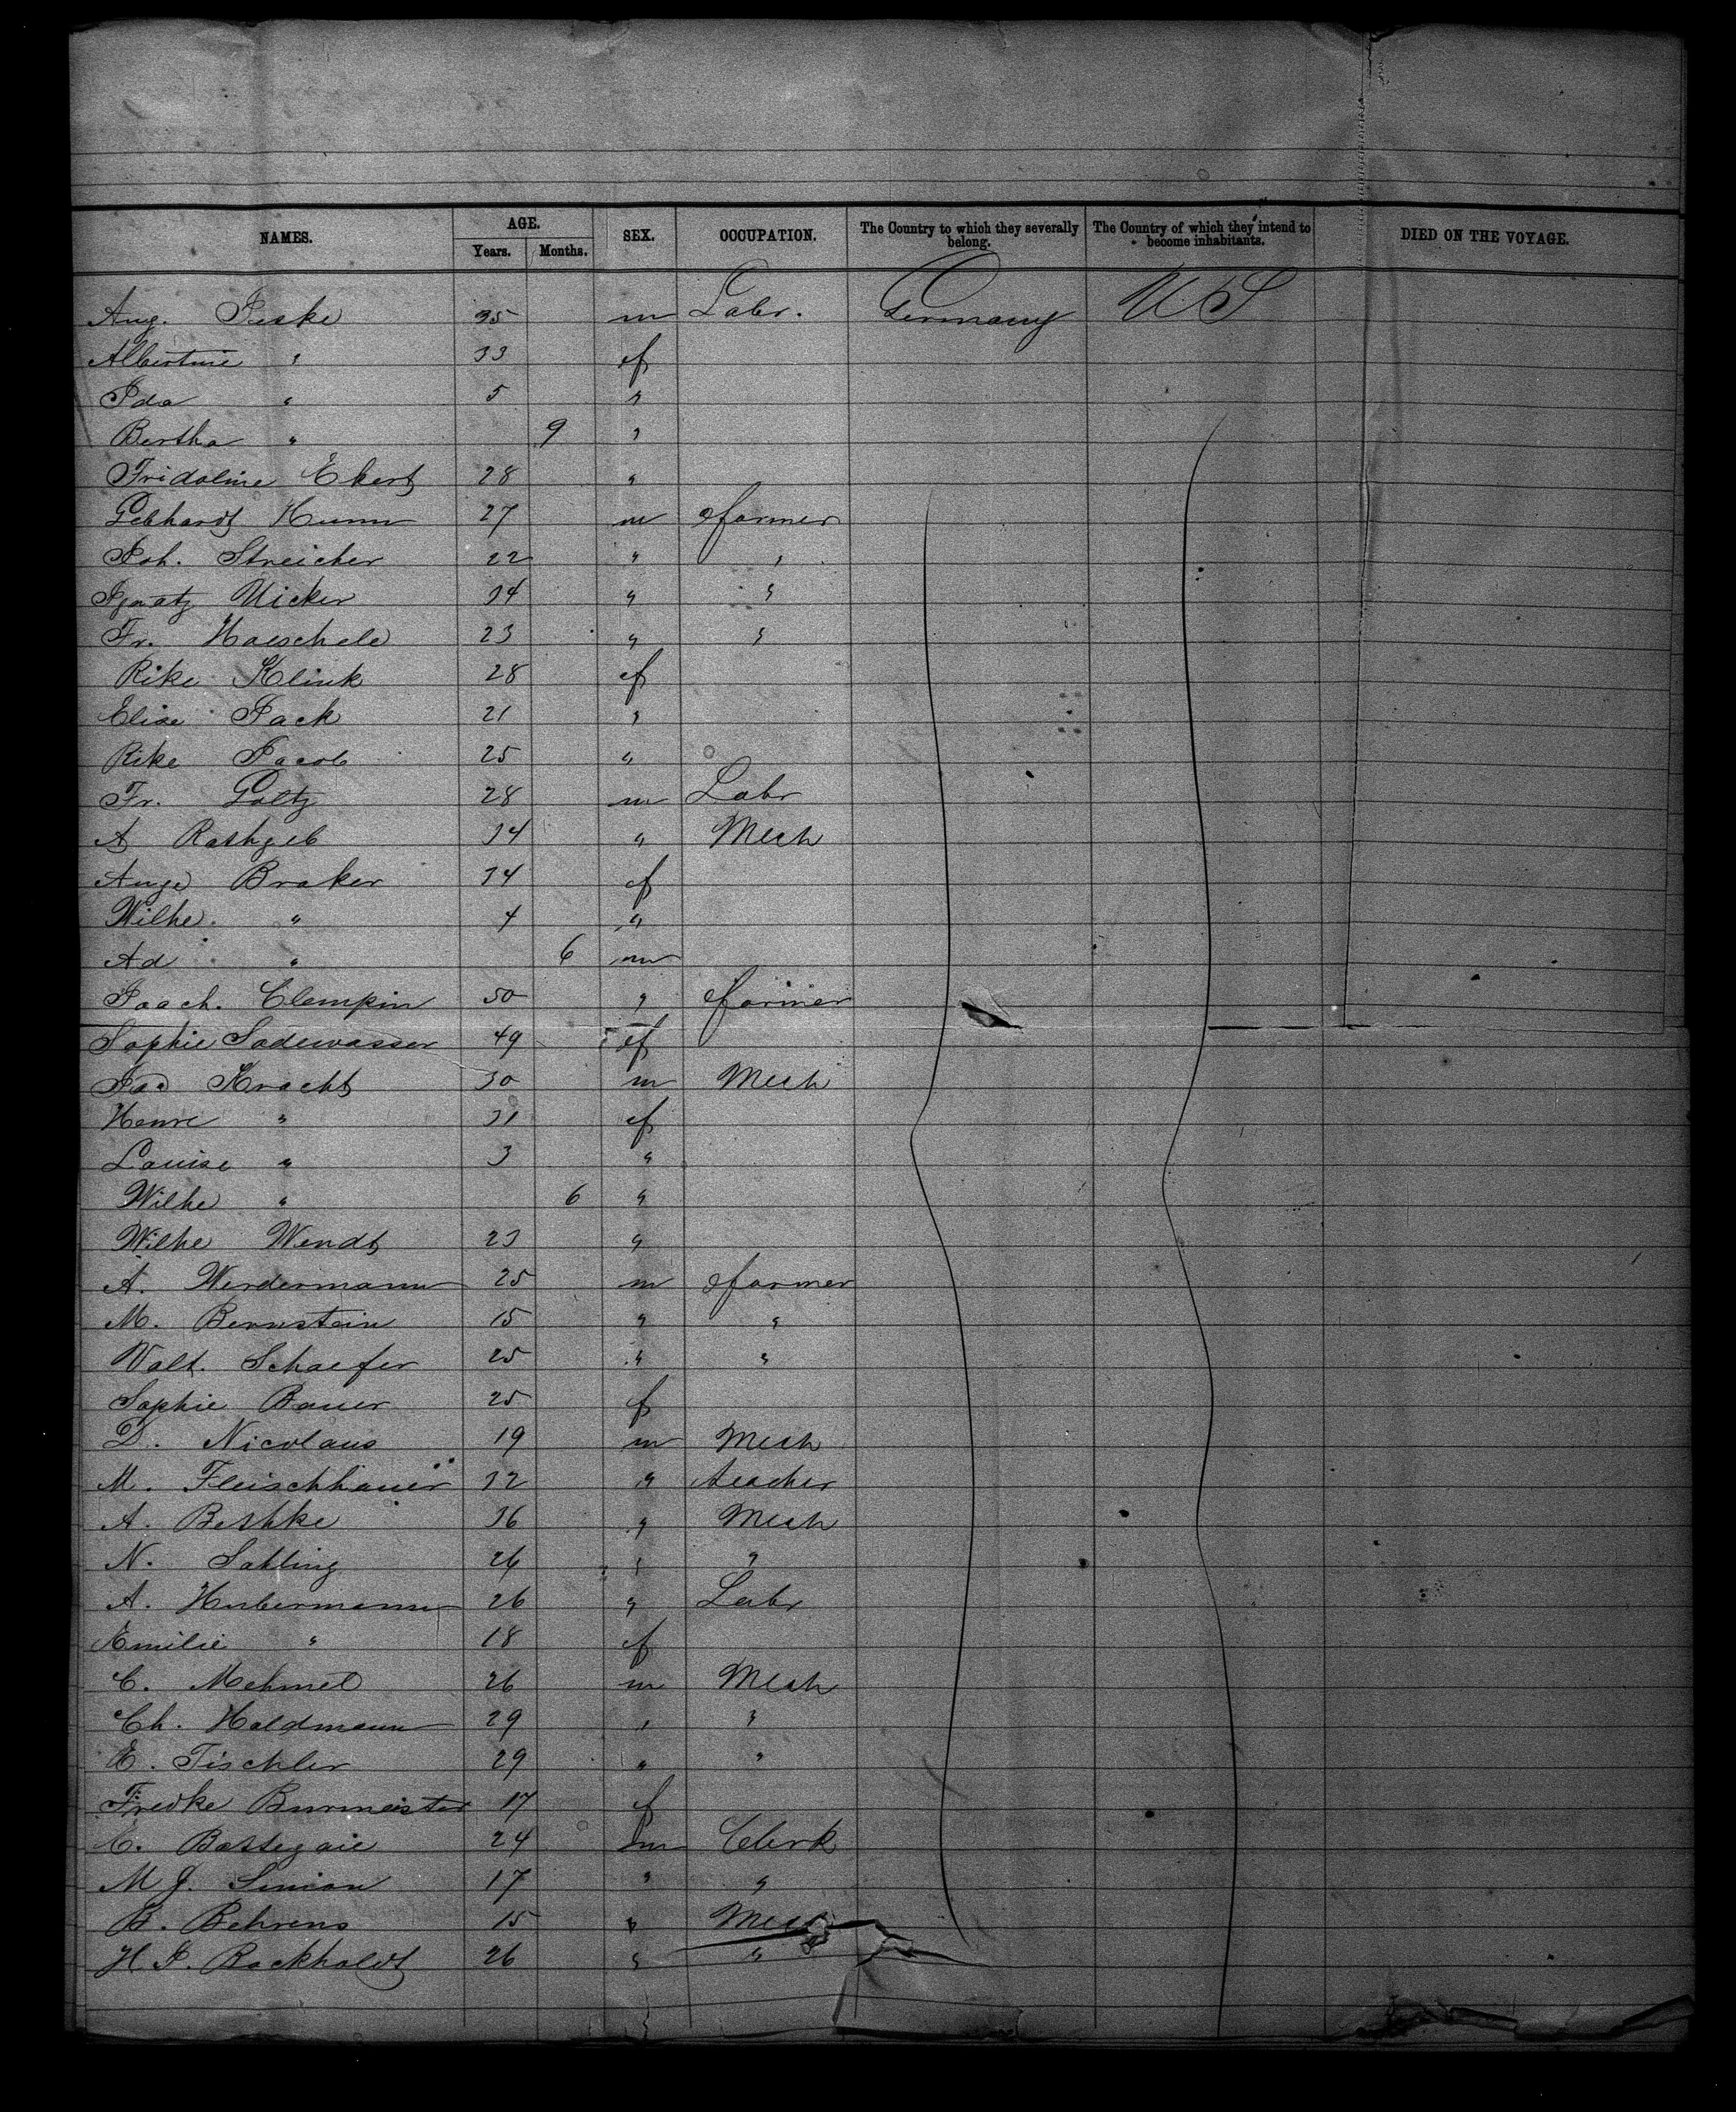 NAMES. AGE. SEX. OCCUPATION. The Country to which they severally belong. The Country of which they intend to become inhabitants. DIED ON THE VOYAGE.
Years. Months.
Aug. Jeske 35 m Labr. Germany U.S
Albertine " 33 f
Ida " 5 "
Bertha " 9 "
Fridoline Ekert 28 "
Gebhardt Humm 27 m farmer
Joh. Streicher 22 " "
Ignatz Uicker 34 " "
Fr. Haeschele 23 " "
Rike Klink 28 f
Elise Jack 21 "
Rike Jacob 25 "
Fr. Goltz 28 m Labr
A Rathgeb 34 " Mech
Auge Braker 34 f
Wilhe. " 4 "
Ad " 6 m
Joach. Clempin 50 " farmer
Sophie Sodewasser 49 f
Jac Kracht 30 m Mech
Henre " 31 f
Louise " 3 "
Wilhe " 6 "
Wilhe Wendt 23 "
A. Werdermann 25 m farmer
M. Bernstein 15 " "
Valt. Schaefer 25 " "
Sophie Bauer 25 f
D. Nicolaus 19 m Mech
M. Fleischhauer 32 " teacher
A. Bethke 36 " Mech
N. Sahling 26 " "
A. Hubermann 26 " Labr
Emilie " 18 f
C. Mehmel 26 m Mech
Ch. Haldmann 29 " "
E. Tischler 29 " "
Fredke Burmeister 17 f
C. 24 m Clerk
M J. Simion 17 " "
B. Behrens 15 " Mech
H. J. Bockholdt 26 " "